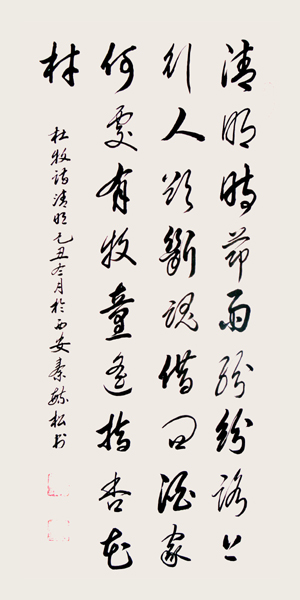 清明時節雨紛紛路上
行人欲斷魂借問酒家
何處有牧童遙指杏花
村
杜牧詩清明己丑冬月於西安秦毓松书